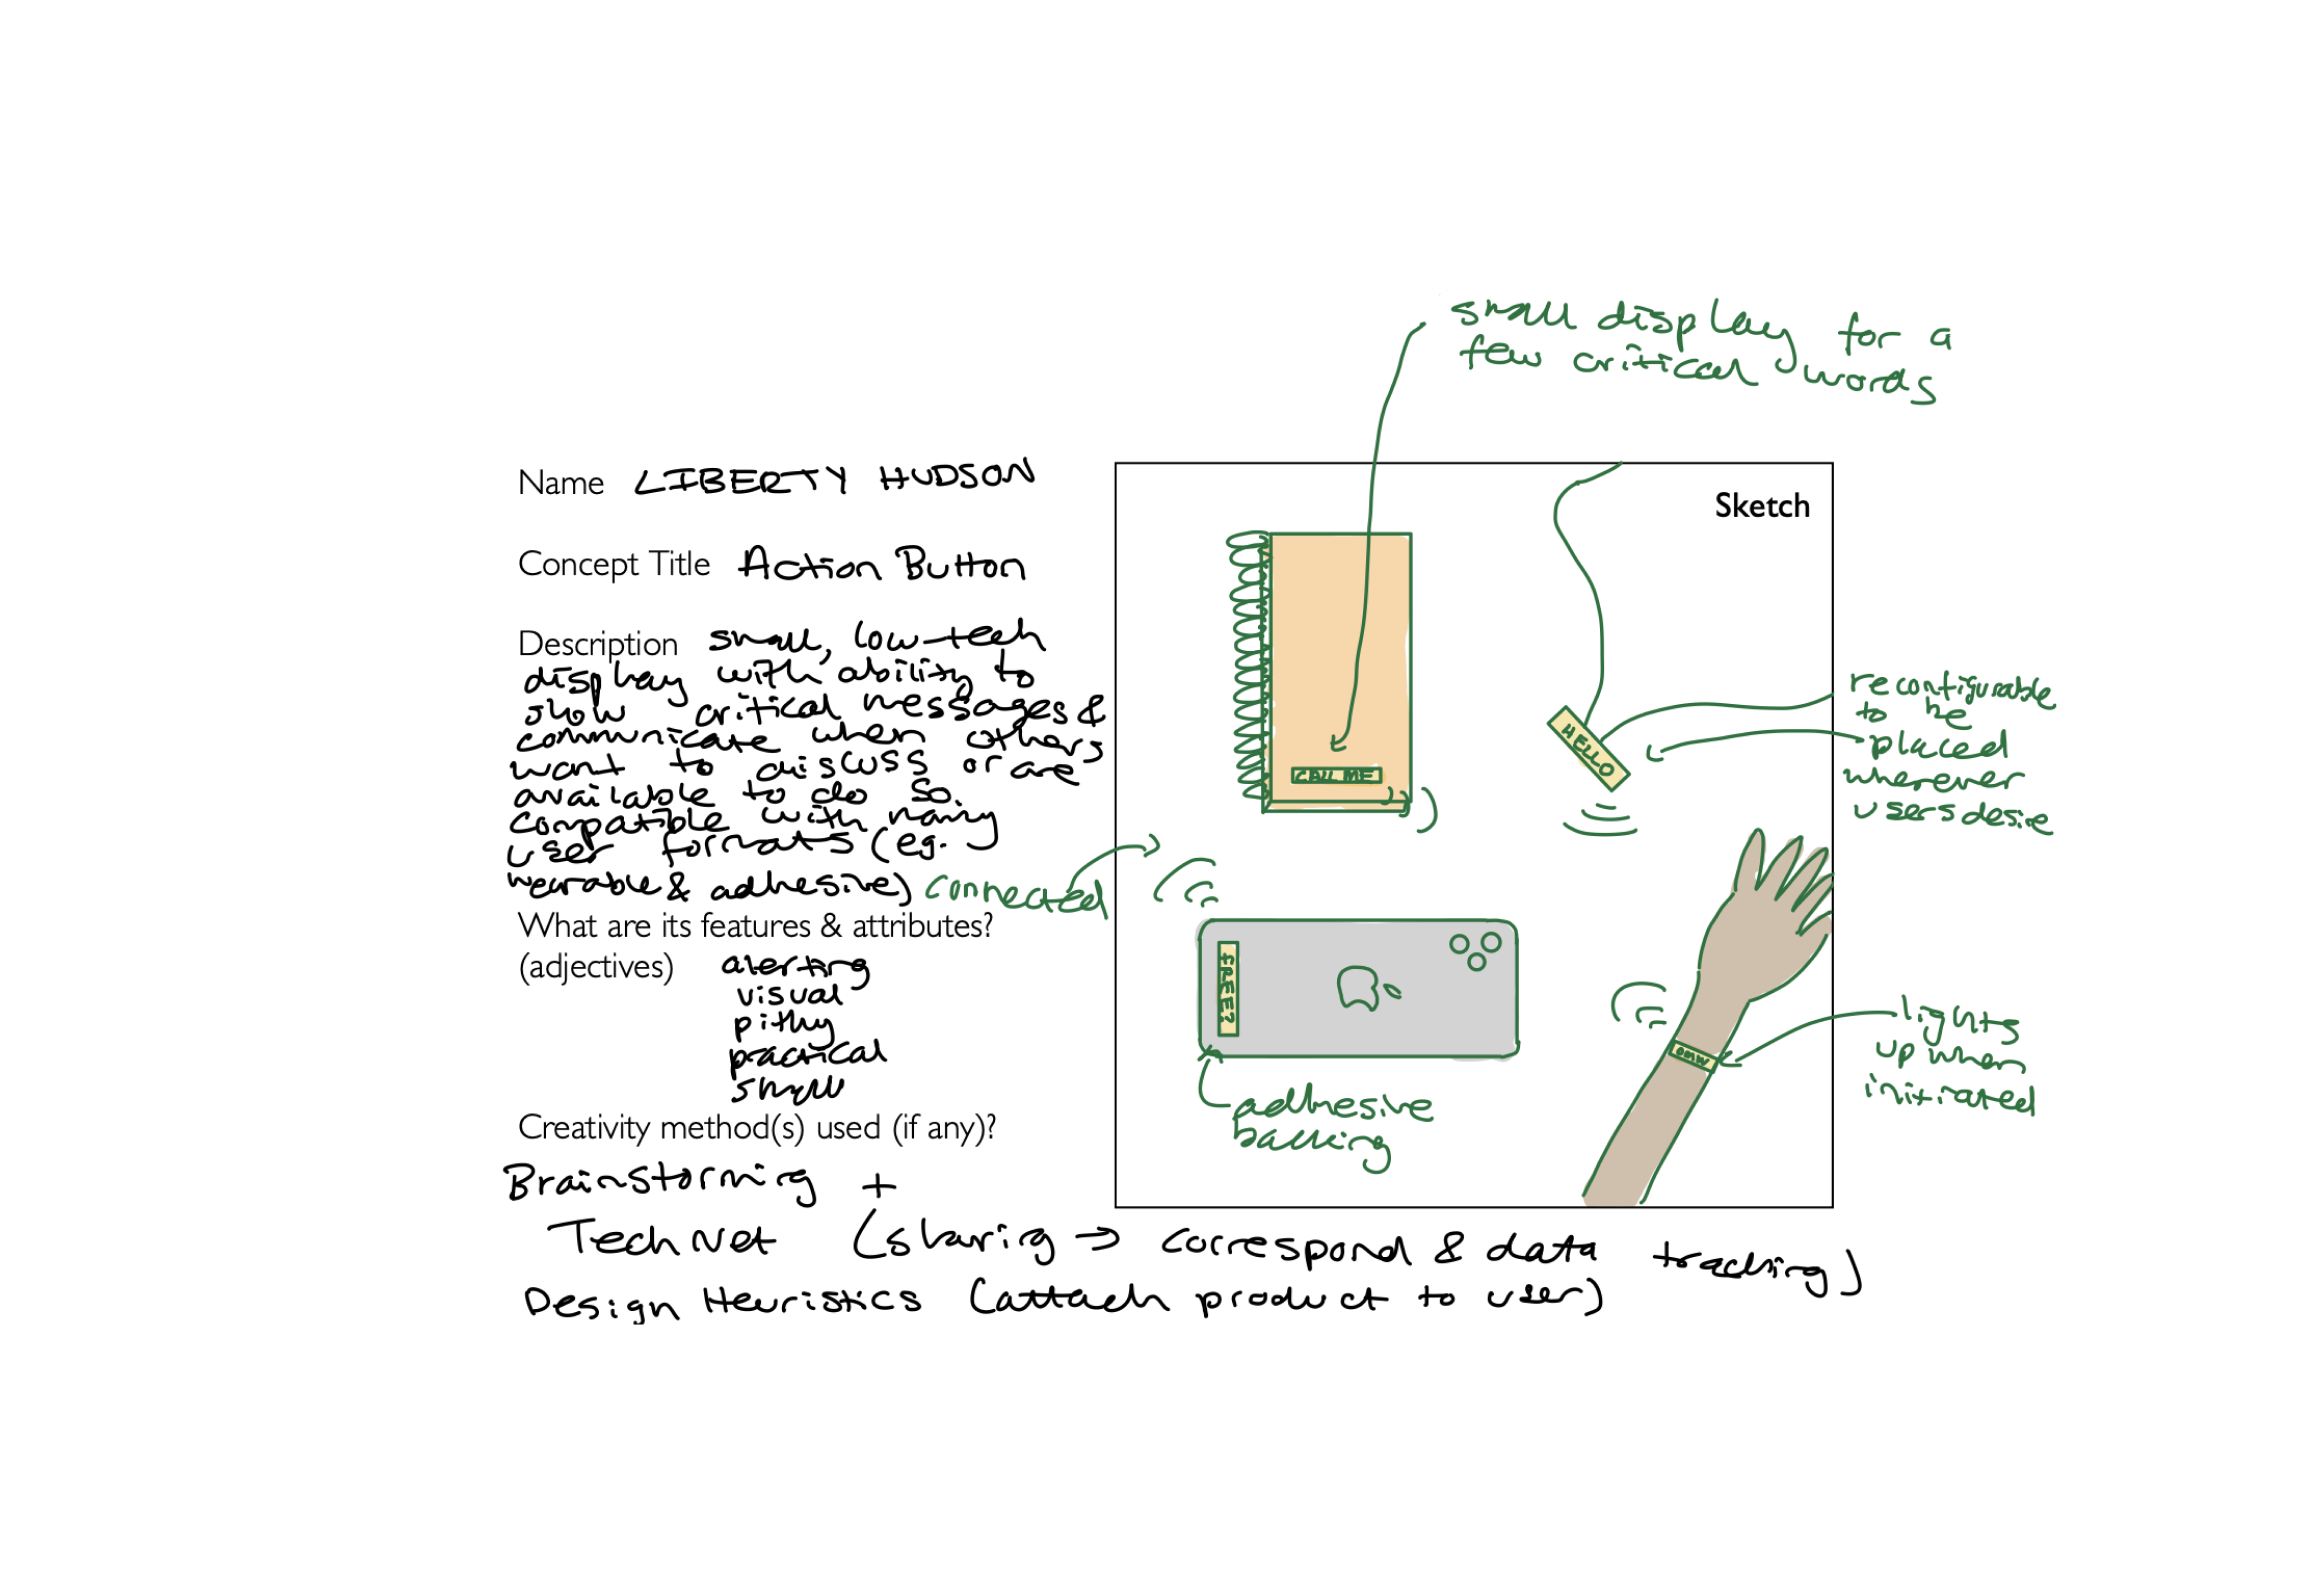 small display for a
few critical words
Name LIBERTY HUDSON
Sketch
Concept Title Action Button
Description small, low-tech
display with ability to
show critical messages &
communicate when others
want to discuss or are
available to do so.
compatible with many
user formats (eg.
wearable & adhesive)
connected
What are its features & attributes?
(adjectives) alerting
visual
pithy
practical
small
Creativity method(s) used (if any)?
Brainstorming +
Tech Net (sharing → correspond & data tracking)
Design Heuristics (attach product to user)
CALL ME
HELLO
reconfigurable
to be
placed
wherever
users desire
FREE?
OMW
lights
up when
initiated
adhesive
backing